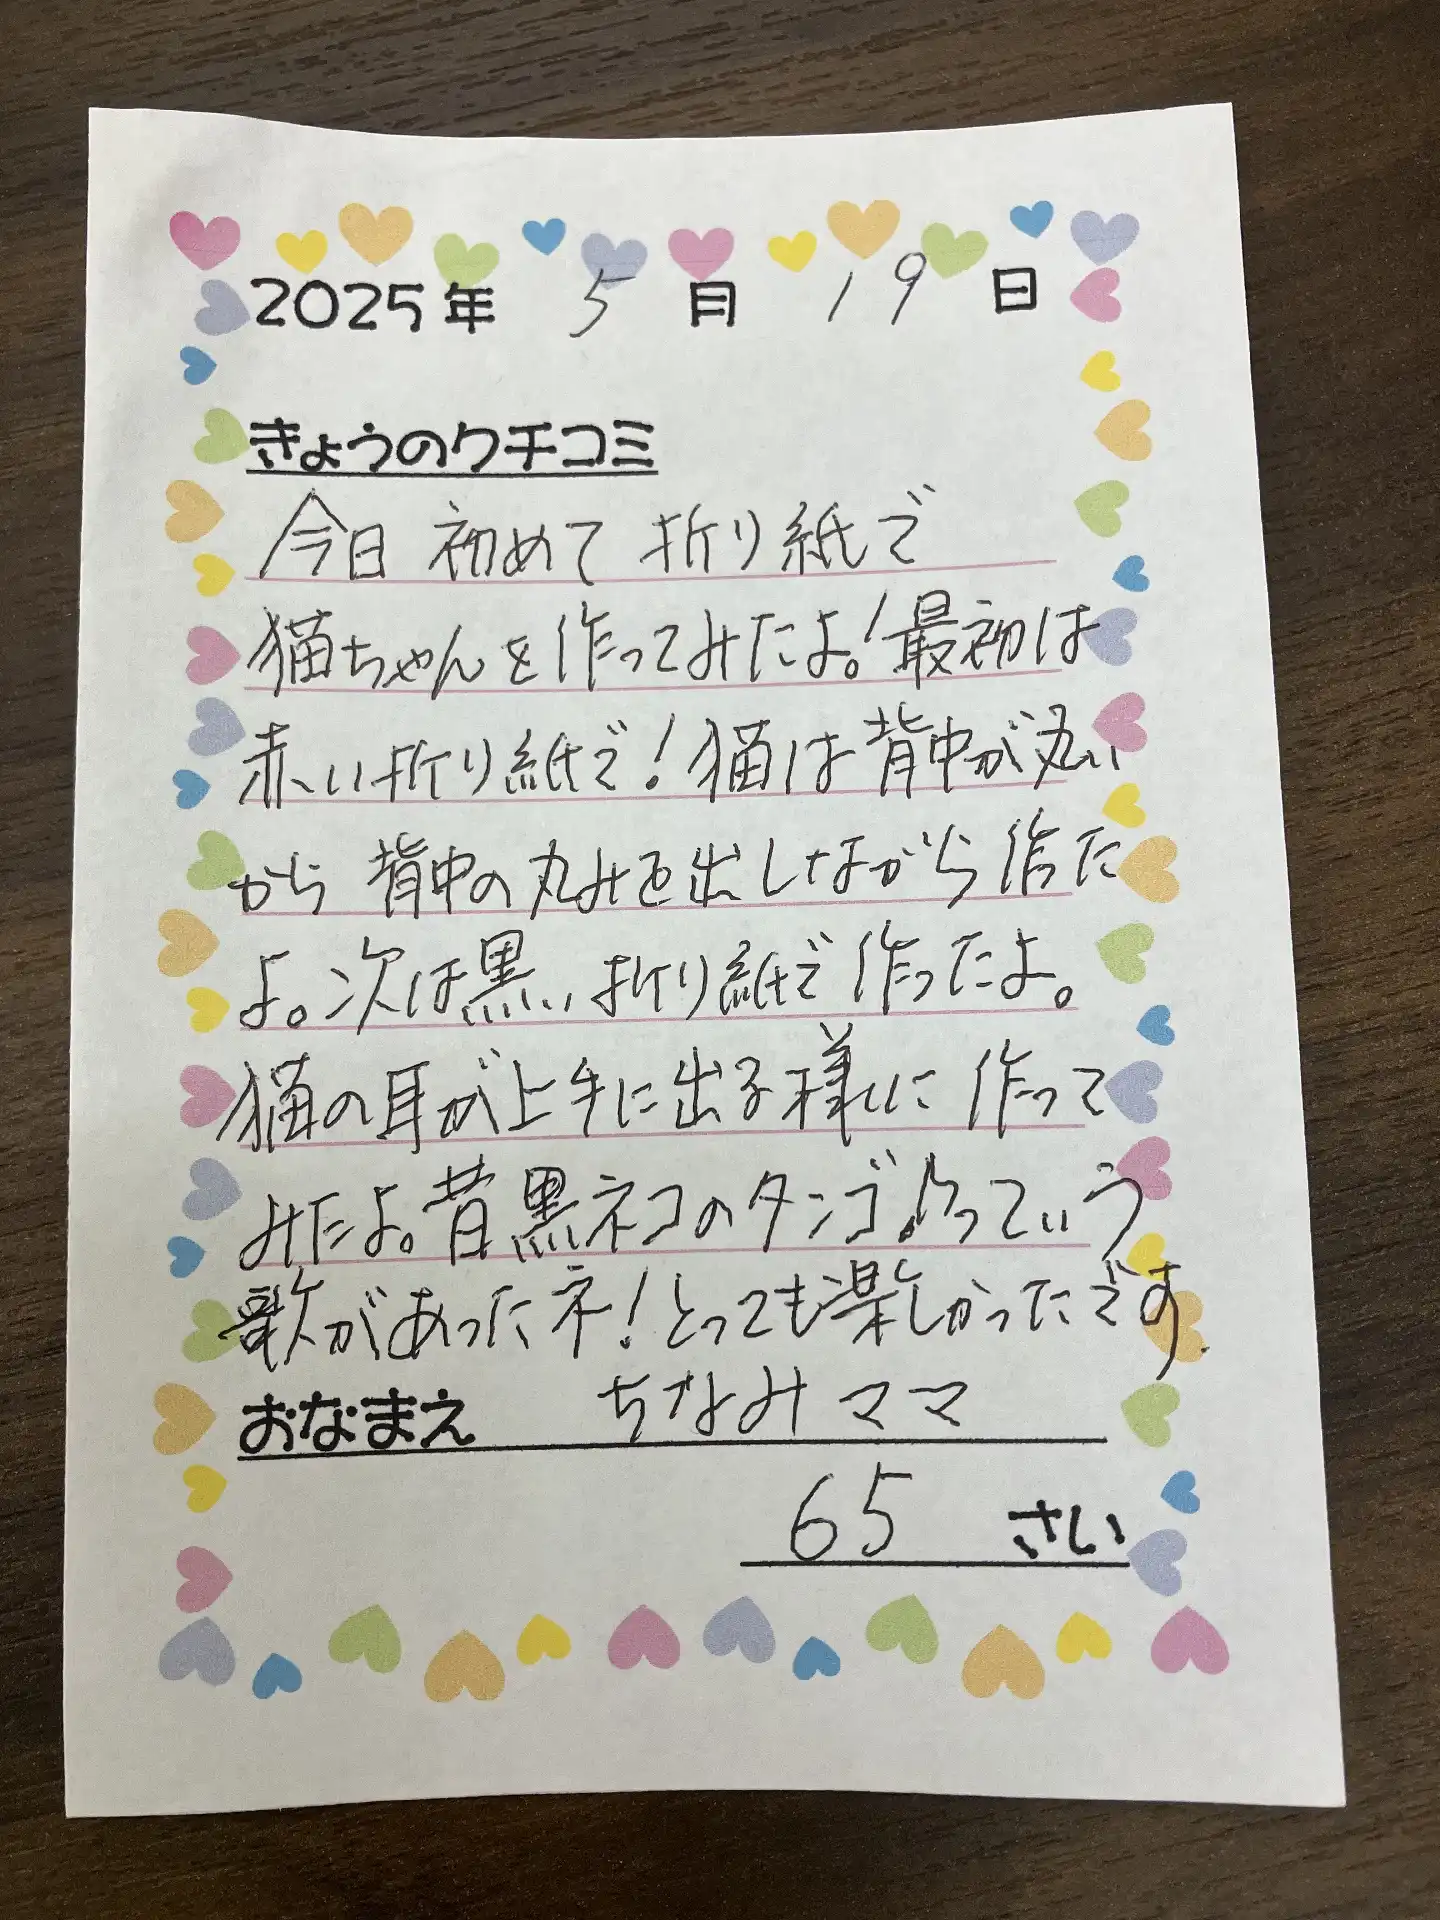 2025年 5月 19日
きょうのクチコミ
今日 初めて 折り紙で
猫ちゃんを作ってみたよ。!最初は
赤い折り紙で!猫は背中が丸い
から 背中の丸みを出しながら作た
よ。次は黒い折り紙で作ったよ。
猫の耳が上手に出る様に 作って
みたよ。昔黒ネコのタンゴ♪っていう
歌があったネ!とっても楽しかったです.
おなまえ ちなみママ
65 さい